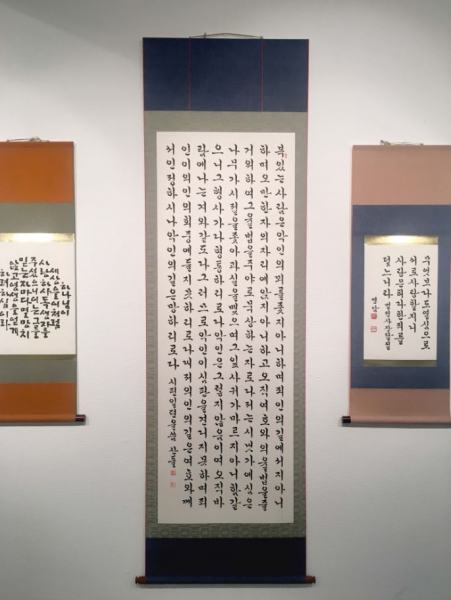 무엇보다도 열심으로
서로 사랑할지니
사랑은 허다한 죄를
덮느니라
복있는 사람은 악인의 꾀를 좇지 아니하며 죄인의 길에 서지 아니
하며 오만한 자의 자리에 앉지 아니하고 오직 여호와의 율법을 즐
거워하여 그 율법을 주야로 묵상하는 자로다 저는 시냇가에 심은
나무가 시절을 좇아 과실을 맺으며 그 잎사귀가 마르지 아니함 같
으니 그 행사가 다 형통하리로다 악인은 그렇지 않음이여 오직 바
람에 나는 겨와 같도다 그러므로 악인이 심판을 견디지 못하며 죄
인이 의인의 회중에 들지 못하리로다 대저 의인의 길은 여호와께
서 인정하시나 악인의 길은 망하리로다 시편일편
하나님이
세상을 이처럼
사랑하사 독생자를
주셨으니 이는 저를
믿는 자마다 멸망치
않고 영생을 얻게
하려 하심이라